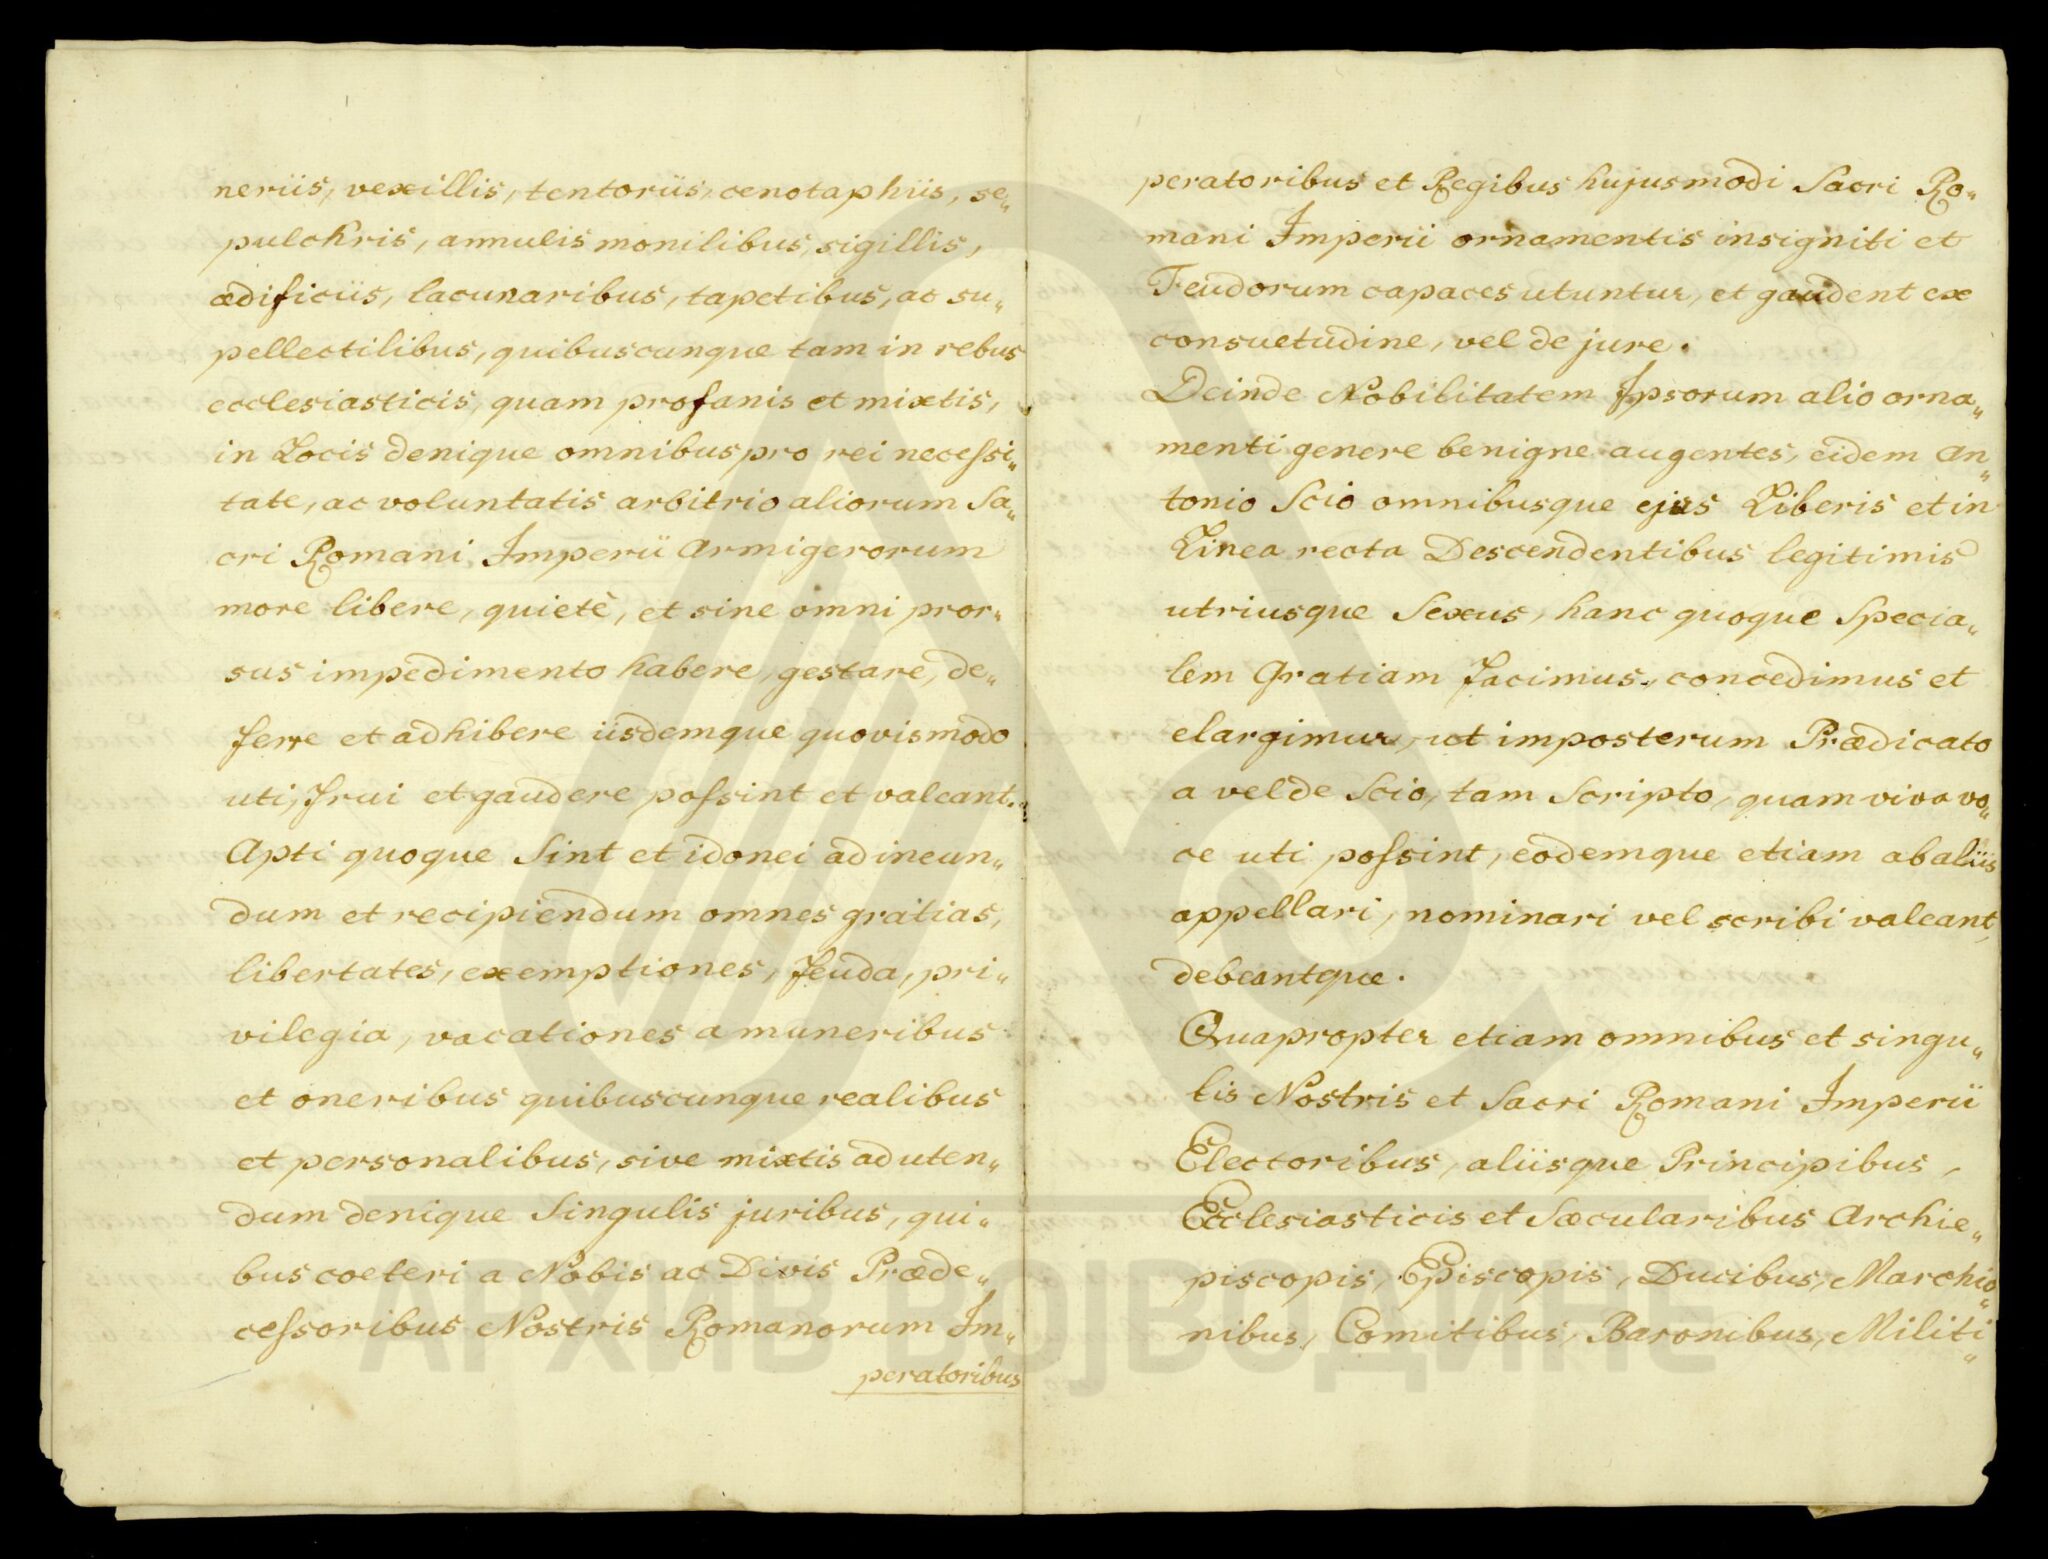 neriis, vexillis, tentoriis, cenotaphiis, se„
pulchris, annulis monilibus, sigillis,
ædificiis, lacunaribus, tapetibus, ac su„
pellectilibus, quibuscunque tam in rebus
ecclesiasticis, quam profanis et mixtis,
in Locis denique omnibus pro rei necessi„
tate, ac voluntatis arbitrio aliorum Sa„
cri Romani Imperii Armigerorum
more libere, quietè, et sine omni pror„
sus impedimento habere, gestare, de„
ferre et adhibere iisdemque quovismodo
uti, frui et gaudere possint et valeant.
Apti quoque Sint et idonei ad ineun„
dum et recipiendum omnes gratias,
libertates, exemptiones, feuda, pri„
vilegia, vacationes a muneribus
et oneribus quibuscunque realibus
et personalibus, sive mixtis ad uten„
dum denique Singulis juribus, qui„
bus coeteri a Nobis ac Divis Præde„
cessoribus Nostris Romanorum Im„
peratoribus
peratoribus et Regibus hujusmodi Sacri Ro„
mani Imperii ornamentis insigniti et
Feudorum capaces utuntur, et gaudent ex
consuetudine, vel de jure.
Deinde Nobilitatem Ipsorum alio orna„
menti genere benigne augentes, eidem An„
tonio Scio omnibusque ejus Liberis et in
Linea recta Descendentibus legitimis
utriusque Sexus, hanc quoque Specia„
lem Gratiam facimus, concedimus et
elargimur, ut imposterum Prædicato
a vel de Scio, tam Scripto, quam viva vo„
ce uti possint, eodemque etiam ab aliis
appellari, nominari vel scribi valeant,
debeantque.
Quapropter etiam omnibus et singu„
lis Nostris et Sacri Romani Imperii
Electoribus, aliisque Principibus,
Ecclesiasticis et Sæcularibus Archie„
piscopis, Episcopis, Ducibus, Marchio„
nibus, Comitibus, Baronibus, Militi„
АРХИВ ВОЈВОДИНЕ